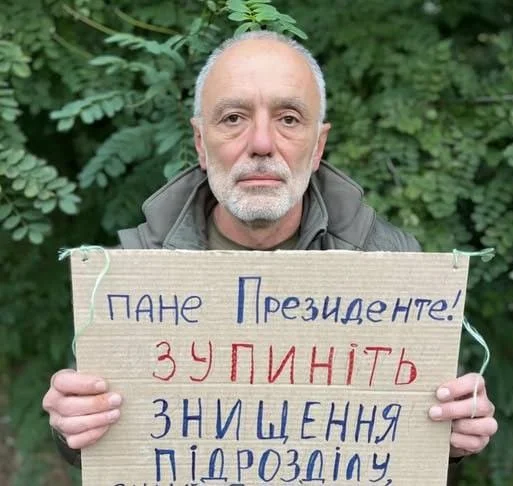 пане Президенте!
ЗУПИНІТЬ
ЗНИЩЕННЯ
ПІДРОЗДІЛУ,